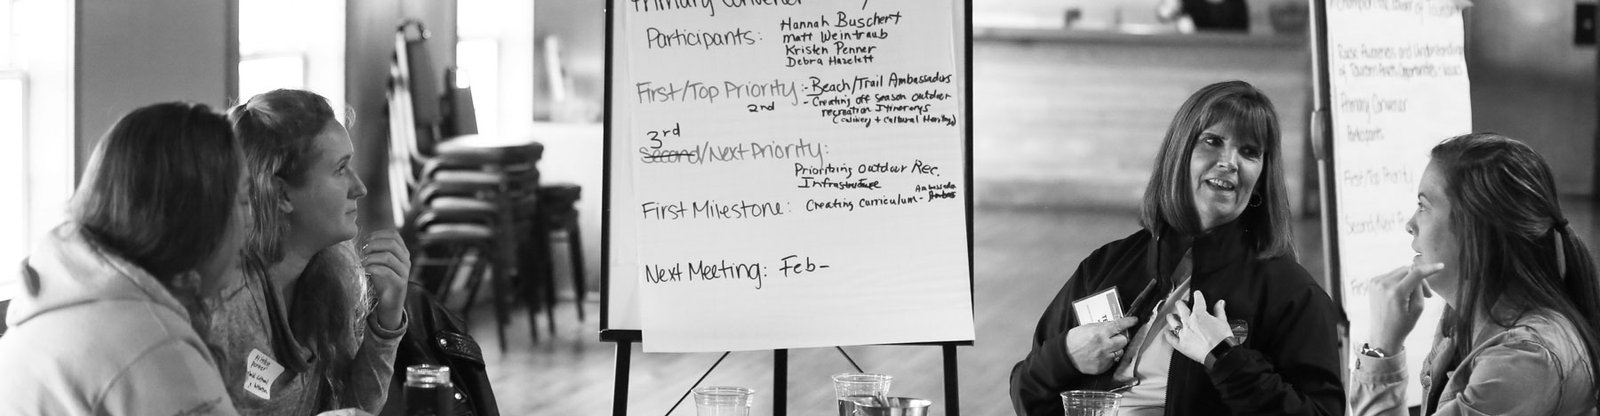 Primary Convener
Participants:
Hannah Buschert
Matt Weintraub
Kristen Penner
Debra Hazelett
First/Top Priority:
- Beach/Trail Ambassadors
2nd
- Creating off season outdoor
recreation Itinerarys
(culinary + cultural Heritage)
3rd
Second/Next Priority:
Prioritizing outdoor Rec.
Infrastructure
First Milestone:
Creating curriculum -
Next Meeting: Feb -
Raise Awareness and Understanding
of Tourism
Primary Convener
Participants
First/Top Priority
Second/Next
First